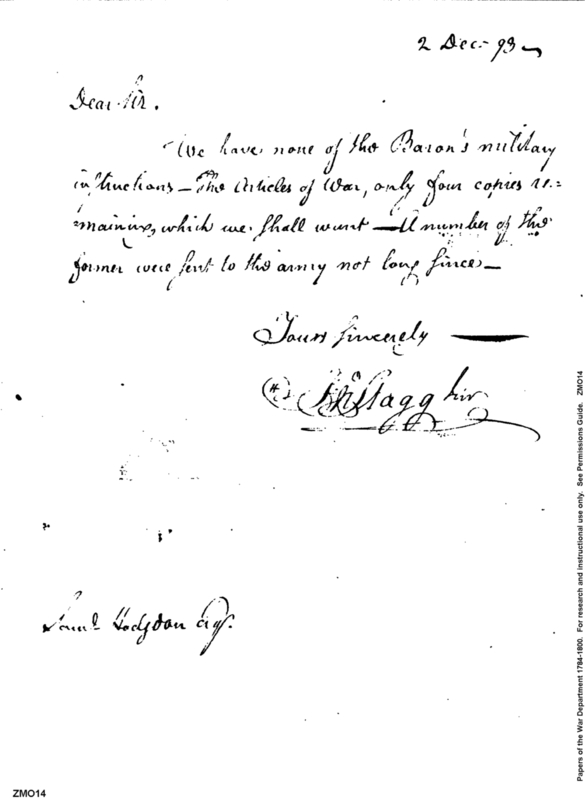 2 Dec. 93
Dear Sir.
We have none of the Baron's military
instructions - The Articles of War, only four copies re=
=maining, which we shall want - A number of the
former were sent to the army not long since -
Yours sincerely
Stagg Jun.
Saml. Hodgdon Esq.
ZMO14
Papers of the War Department 1784-1800. For research and instructional use only. See Permissions Guide. ZMO14